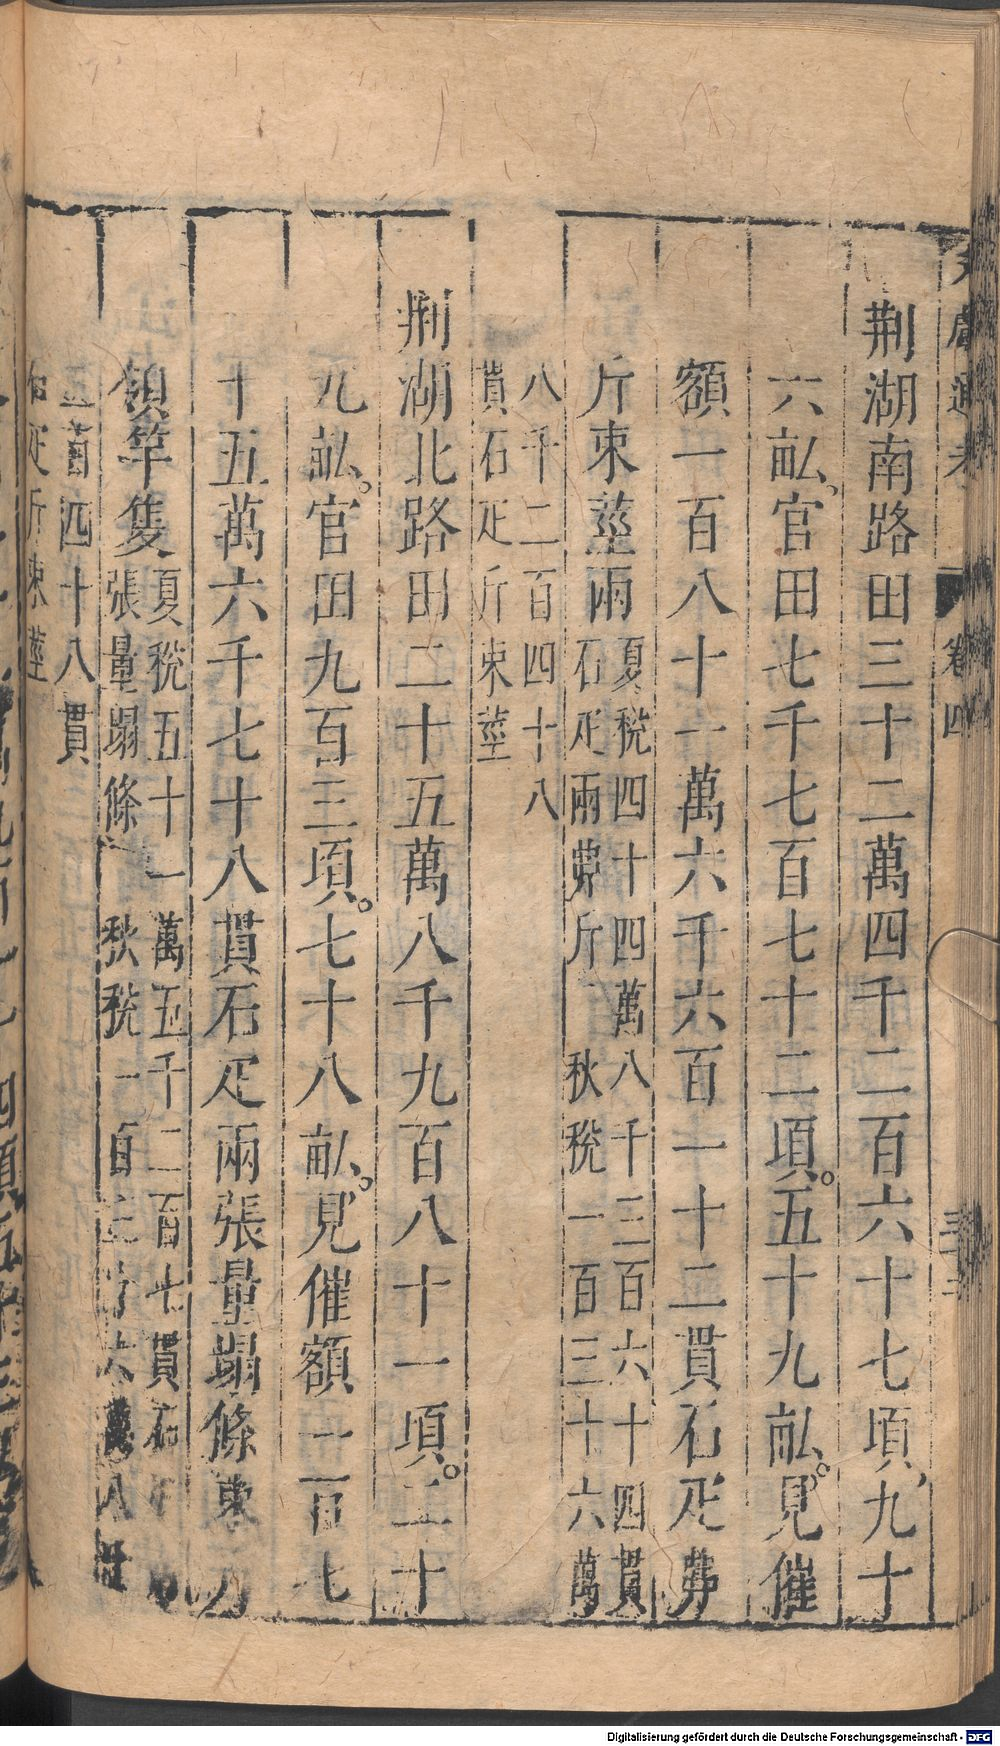 文獻通考 卷四
荆湖南路田三十二萬四千二百六十七頃九十
六畆官田七千七百七十二頃五十九畆見催
額一百八十一萬六千六百一十二貫石疋
斤束莖兩夏稅四十四萬八千三百六十四貫
石疋兩斤 秋稅一百三十六萬
八千二百四十八
貫石疋斤束莖
荆湖北路田二十五萬八千九百八十一頃二十
九畆官田九百三頃七十八畆見催額一百七
十五萬六千七十八貫石疋兩張量塌條束斤
領竿隻夏稅五十一萬五千二百七貫石
張量塌條 秋稅一百二十 萬八
百四十八貫
疋斤束莖
Digitalisierung gefördert durch die Deutsche Forschungsgemeinschaft - DFG